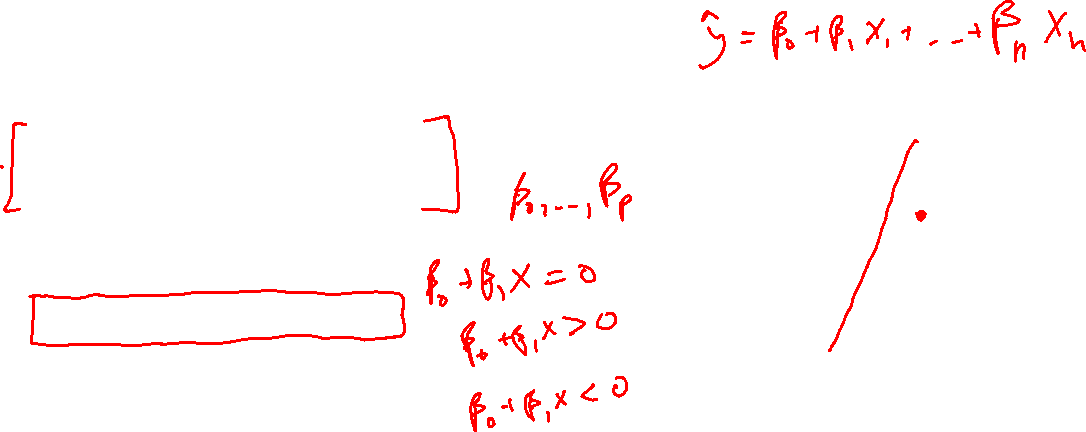 ŷ = β₀ + β₁ X₁ + ... + βₙ Xₙ
β₀, ..., βₚ
β₀ + β₁ X = 0
β₀ + β₁ X > 0
β₀ + β₁ X < 0